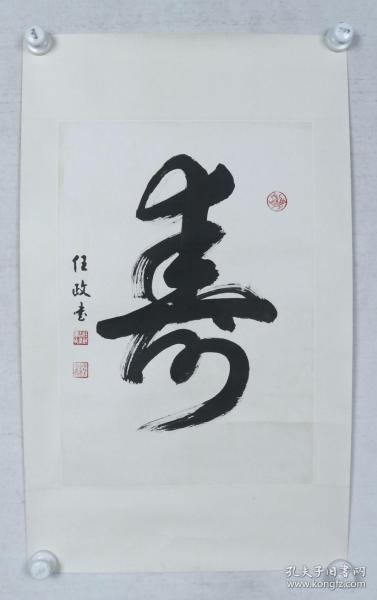 寿
任政书
孔夫子旧书网
www.kongfz.com